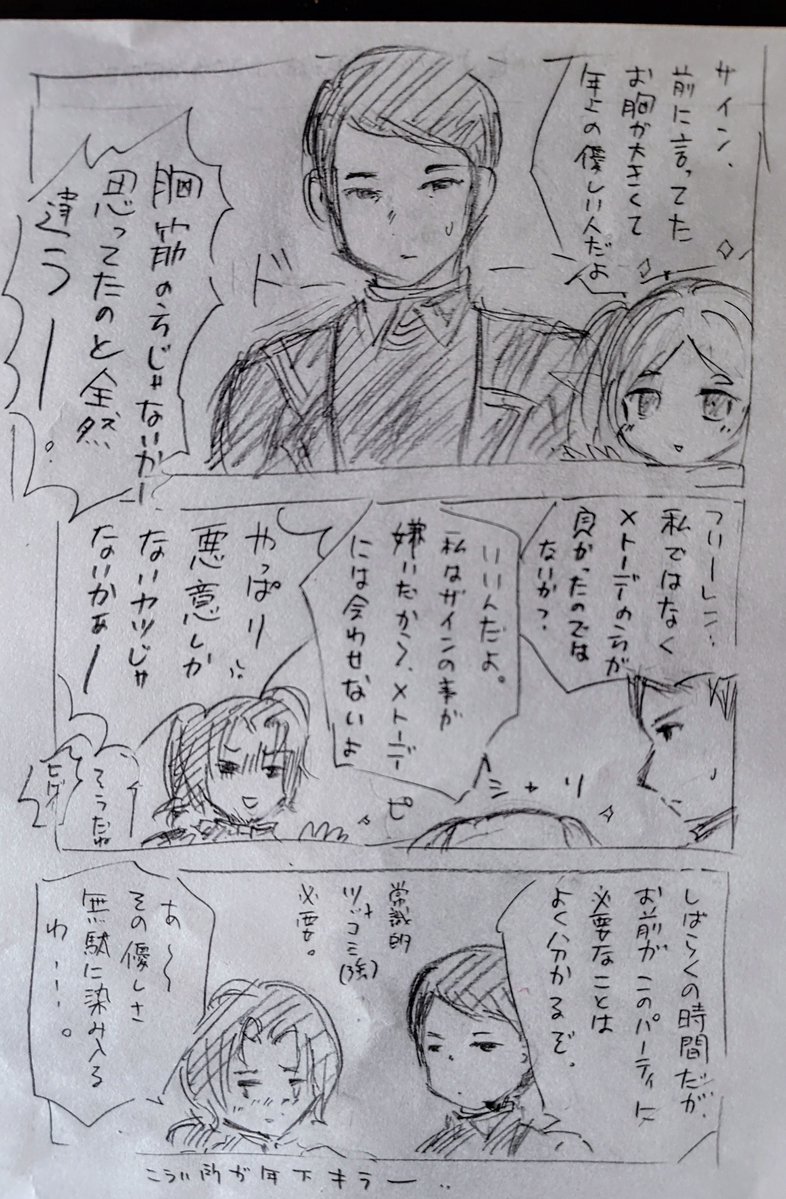 ザイン、
前に言ってた
お胸が大きくて
年上の優しい人だよ
ドーン
胸筋の方じゃないか!!
思ってたのと全然
違うー。
フリーレン…
私ではなく
メトーデの方が
良かったのでは
ないか?
いいんだよ。
私はザインの事が
嫌いだから、メトーデ
には会わせないよ
シャリ
ピ
やっぱり
悪意しか
ないヤツじゃ
ないかぁー
そうだね
しばらくの時間だが、
お前がこのパーティに
必要なことは
よく分かるぞ。
常識的
ツッコミ(強)
必要。
あ〜
その優しさ
無駄に染み入る
わー…。
こういう所が年下キラー…